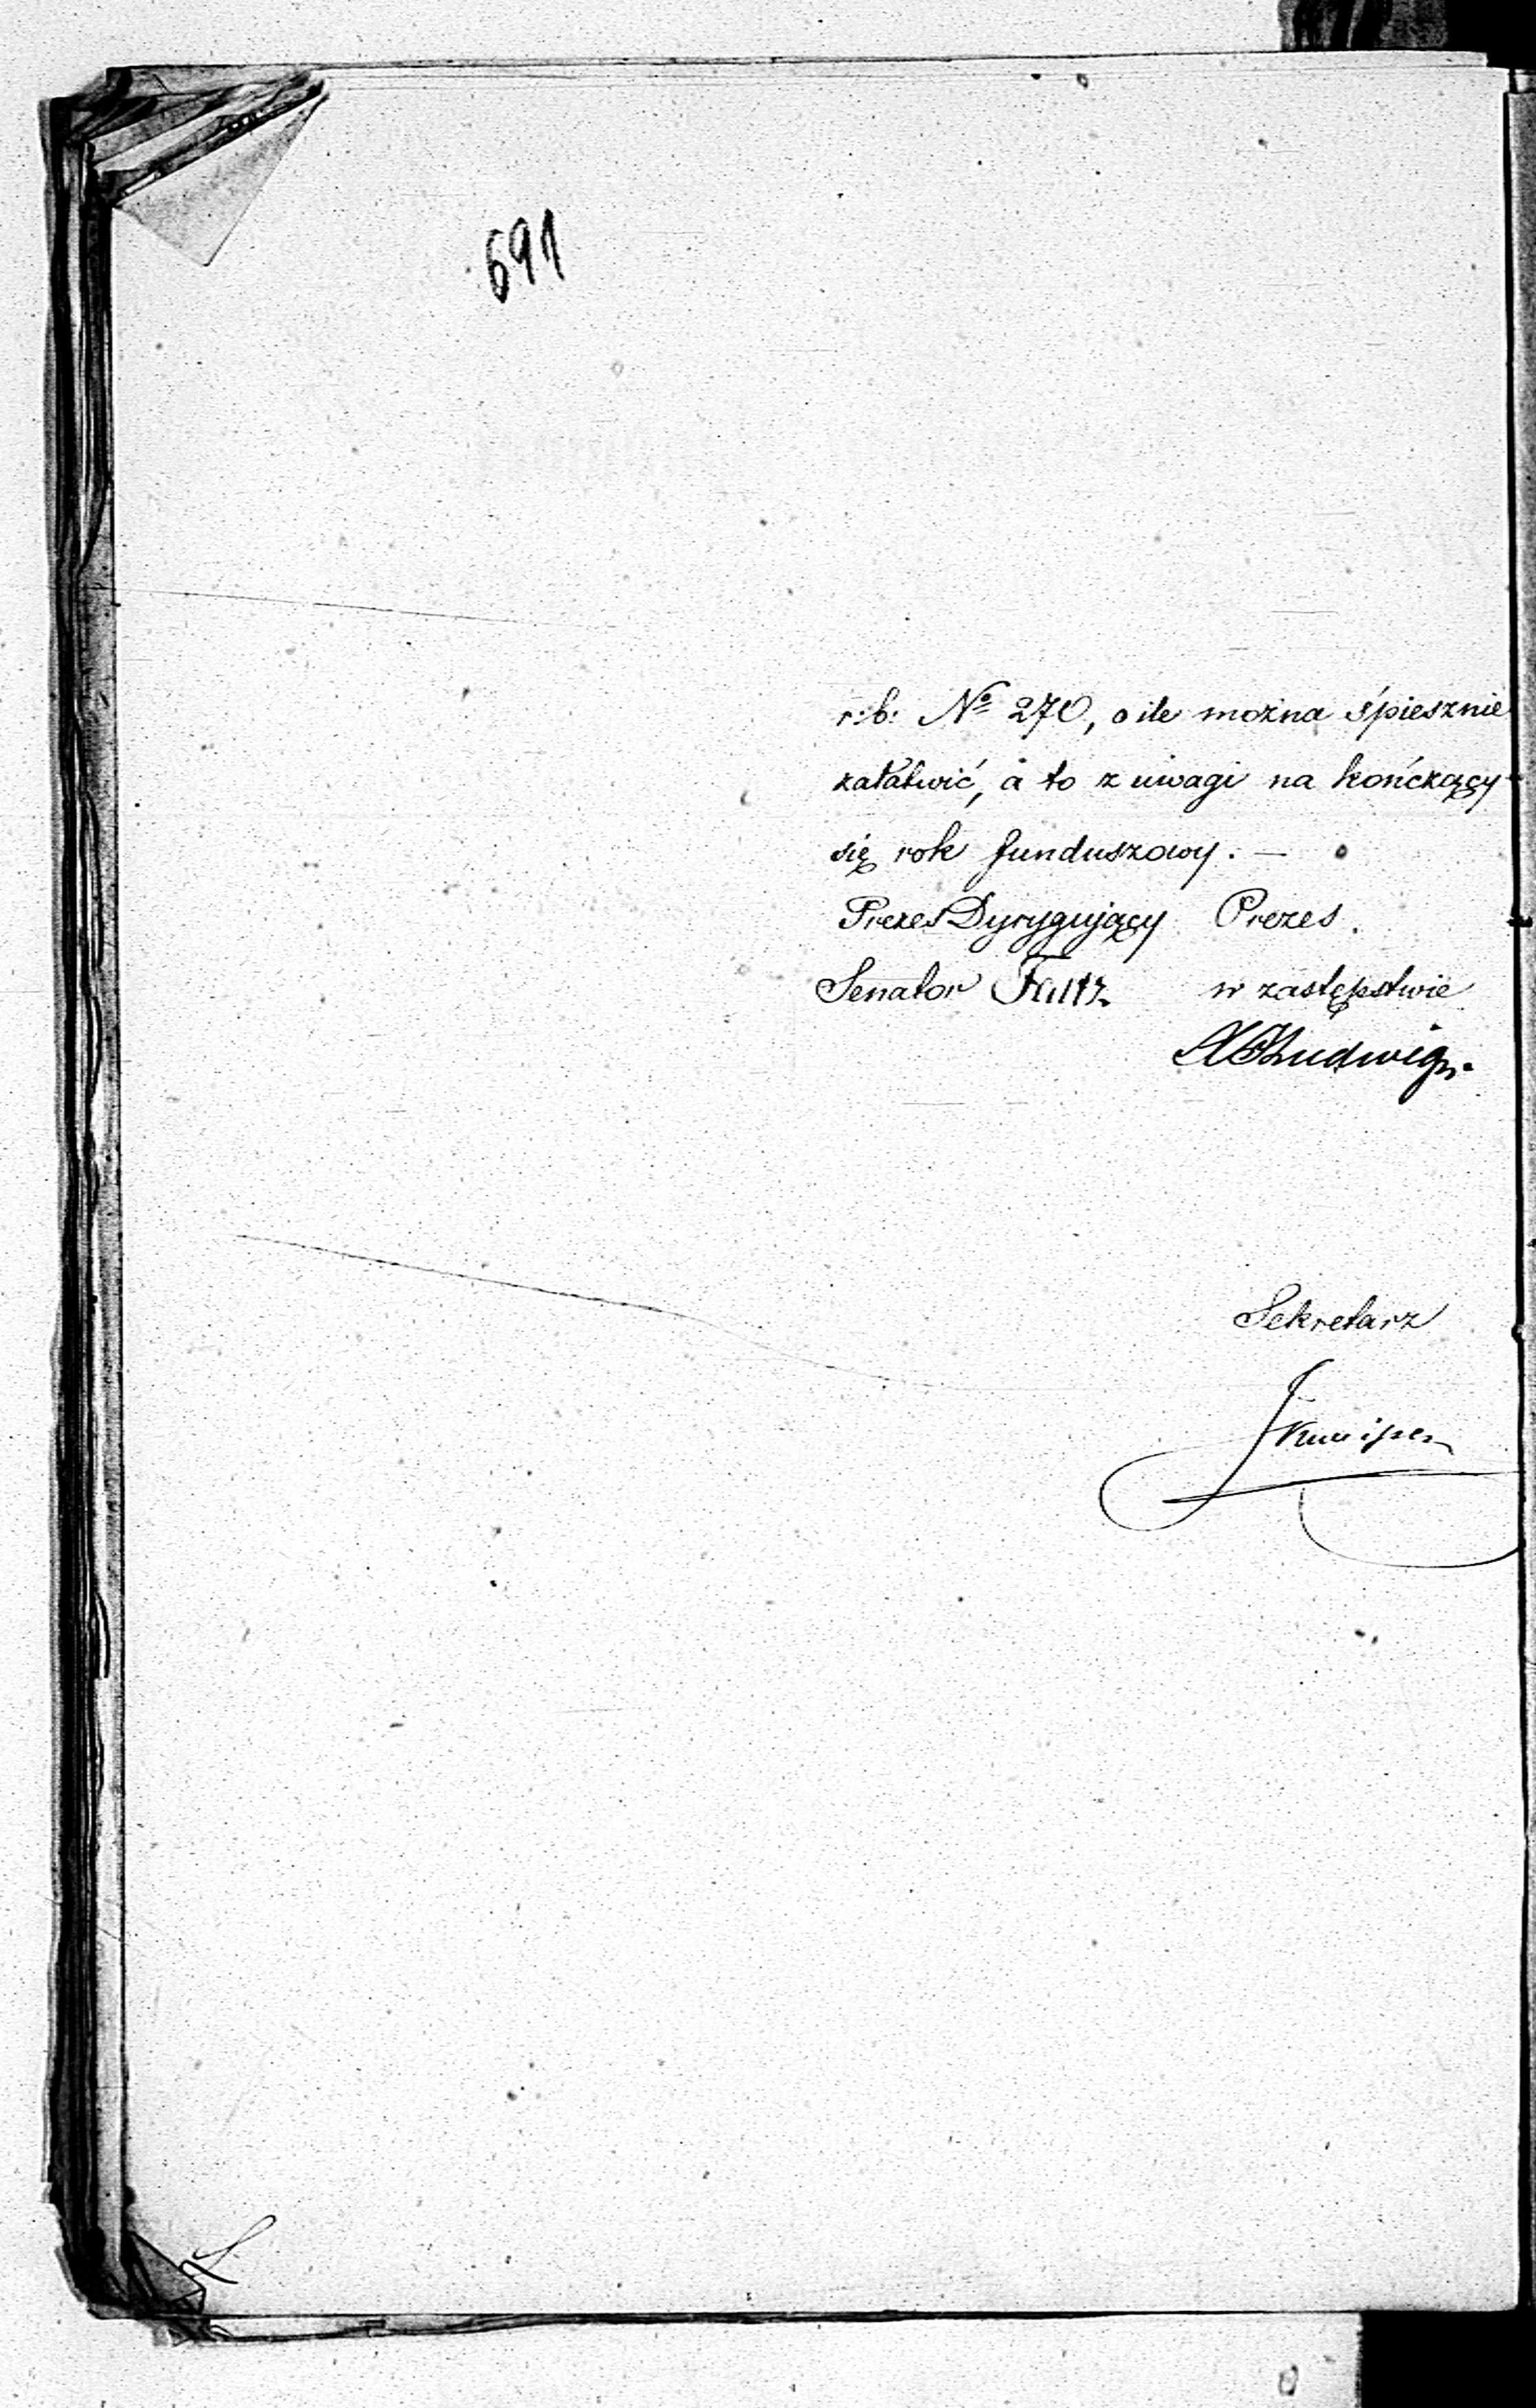 691
r: b: Nº 270, o ile można śpiesznie
załatwić, a to z uwagi na kończący
się rok funduszowy. —
Prezes Dyrygujący Prezes.
Senator w zastępstwie
Ludwig
Sekretarz